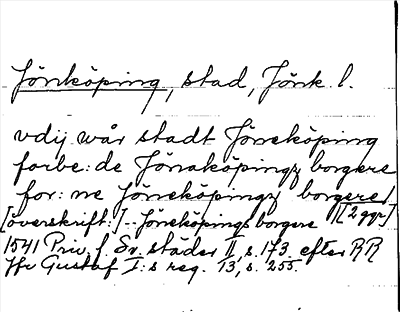 Jönköping, stad, Jönk. l.
vdij wår stadt Jöneköping
forbe: de Jönaköpingz borgere
for: ne Jöneköpingz borgere/
[överskrift:] -- Jöneköpings borgere [[2 ggr]
1541 Priv. f. Sv. städer II, s. 173 efter RR
Hr Gustaf I:s reg. 13, s. 255.